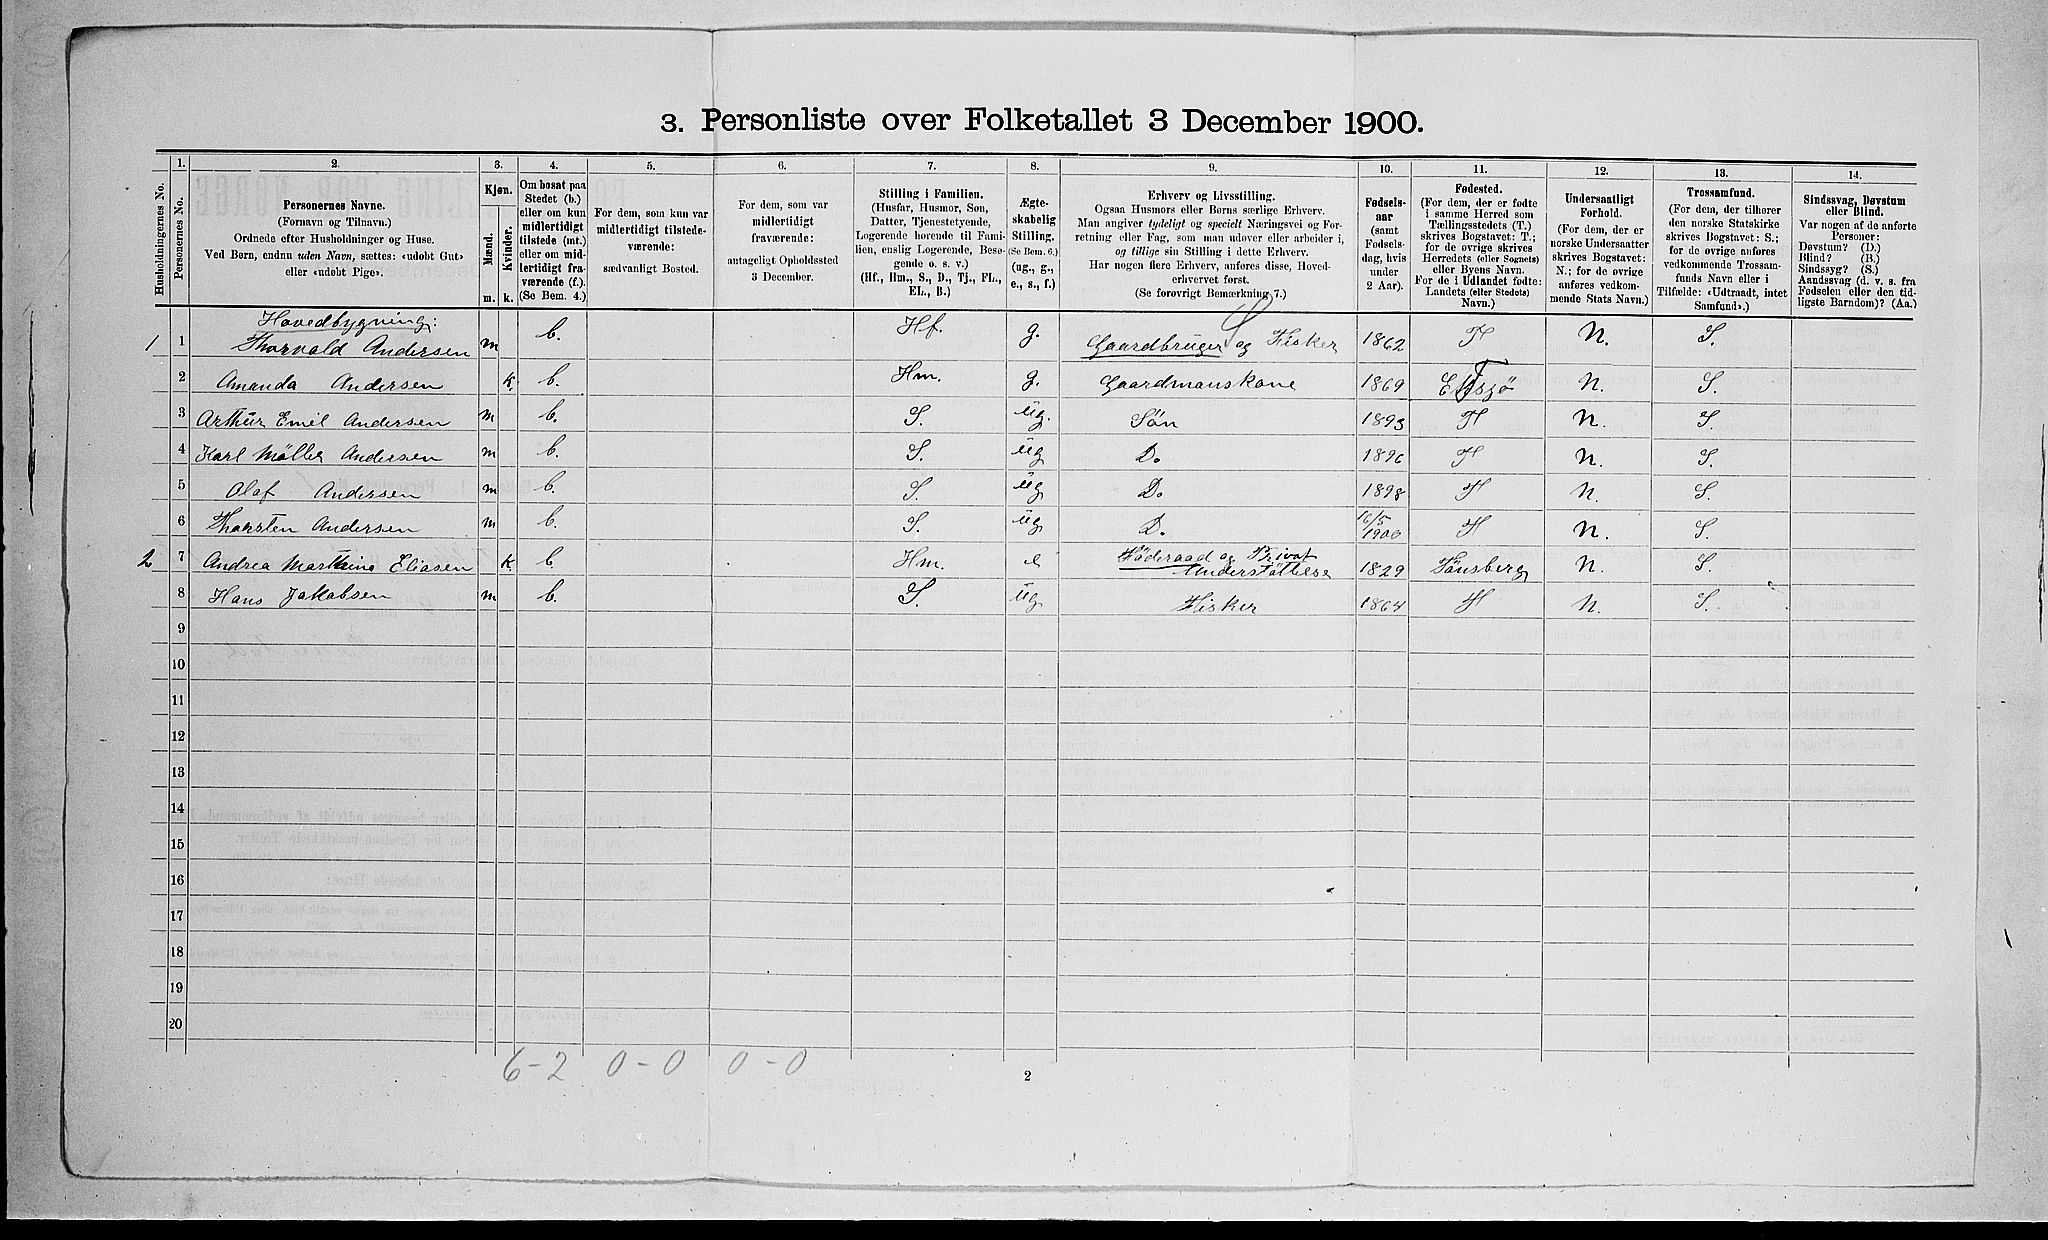 3. Personliste over Folketallet 3 December 1900.
1. 2. 3. 4. 5. 6. 7. 8. 9. 10. 11. 12. 13. 14.
Husholdningernes No.
Personernes No.
Personernes Navne.
(Fornavn og Tilnavn.)
Ordnede efter Husholdninger og Huse.
Ved Børn, endnu uden Navn, sættes: «udøbt Gut»
eller «udøbt Pige».
Kjøn.
Mænd.
Kvinder.
m. k.
Om bosat paa
Stedet (b.)
eller om kun
midlertidigt
tilstede (mt.)
eller om mid-
lertidigt fra-
værende (f.).
(Se Bem. 4.)
For dem, som kun var
midlertidigt tilstede-
værende:
sædvanligt Bosted.
For dem, som var
midlertidigt
fraværende:
antageligt Opholdssted
3 December.
Stilling i Familien.
(Husfar, Husmor, Søn,
Datter, Tjenestetyende,
Logerende hørende til Fami-
lien, enslig Logerende, Besø-
gende o. s. v.)
(Hf., Hm., S., D., Tj., FL.,
EL., B.)
Ægte-
skabelig
Stilling.
(Se Bem. 6.)
(ug., g.,
e., s., f.)
Erhverv og Livsstilling.
Ogsaa Husmors eller Børns særlige Erhverv.
Man angiver tydeligt og specielt Næringsvei og For-
retning eller Fag, som man udøver eller arbeider i,
og tillige sin Stilling i dette Erhverv.
Har nogen flere Erhverv, anføres disse, Hoved-
erhvervet først.
(Se forøvrigt Bemærkning 7.)
Fødsels-
aar
(samt
Fødsels-
dag, hvis
under
2 Aar).
Fødested.
(For dem, der er fødte
i samme Herred som
Tællingsstedets (T.)
skrives Bogstavet: T.;
for de øvrige skrives
Herredets (eller Sognets)
eller Byens Navn.
For de i Udlandet fødte:
Landets (eller Stedets)
Navn.)
Undersaatligt
Forhold.
(For dem, der er
norske Undersaatter
skrives Bogstavet:
N.; for de øvrige
anføres vedkom-
mende Stats Navn.)
Trossamfund.
(For dem, der tilhører
den norske Statskirke
skrives Bogstavet: S.;
for de øvrige anføres
vedkommende Trossam-
funds Navn eller i
Tilfælde: «Udtraadt, intet
Samfund».)
Sindssvag, Døvstum
eller Blind.
Var nogen af de anførte
Personer:
Døvstum? (D.)
Blind? (B.)
Sindssyg? (S.)
Aandssvag (d. v. s. fra
Fødselen eller den tid-
ligste Barndom)? (Aa.)
Hovedbygning:
1 1 Thorvald Andersen m b. Hf. g. Gaardbruger og Fisker 1862 T N. S.
2 Amanda Andersen k. b. Hm. g. Gaardmanskone 1869 N. S.
3 Arthur Emil Andersen m b. S. ug. Søn 1893 T N. S.
4 Karl Møller Andersen m b. S. ug D. 1896 T N. S.
5 Olaf Andersen m b. S. ug D. 1898 T N. S.
6 Thorsten Andersen m b. S. ug D. 16/5 1900 T N. S.
2 7 Andrea Marthine Eliasen k b. Hm. e Føderaad og Privat
Understøttelse 1829 Tønsberg N. S.
8 Hans Jakobsen m b. S. ug. Fisker 1864 T N. S.
9
10
11
12
13
14
15
16
17
18
19
20
6-2 0-0 0-0
2